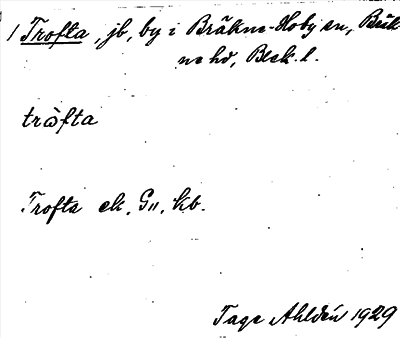 1 Trofta, jb, by i Bräkne-Hoby sn, Bräk
ne hd, Blek. l.
tròfta
Trofta ek. G11. kb.
Tage Ahldén 1929